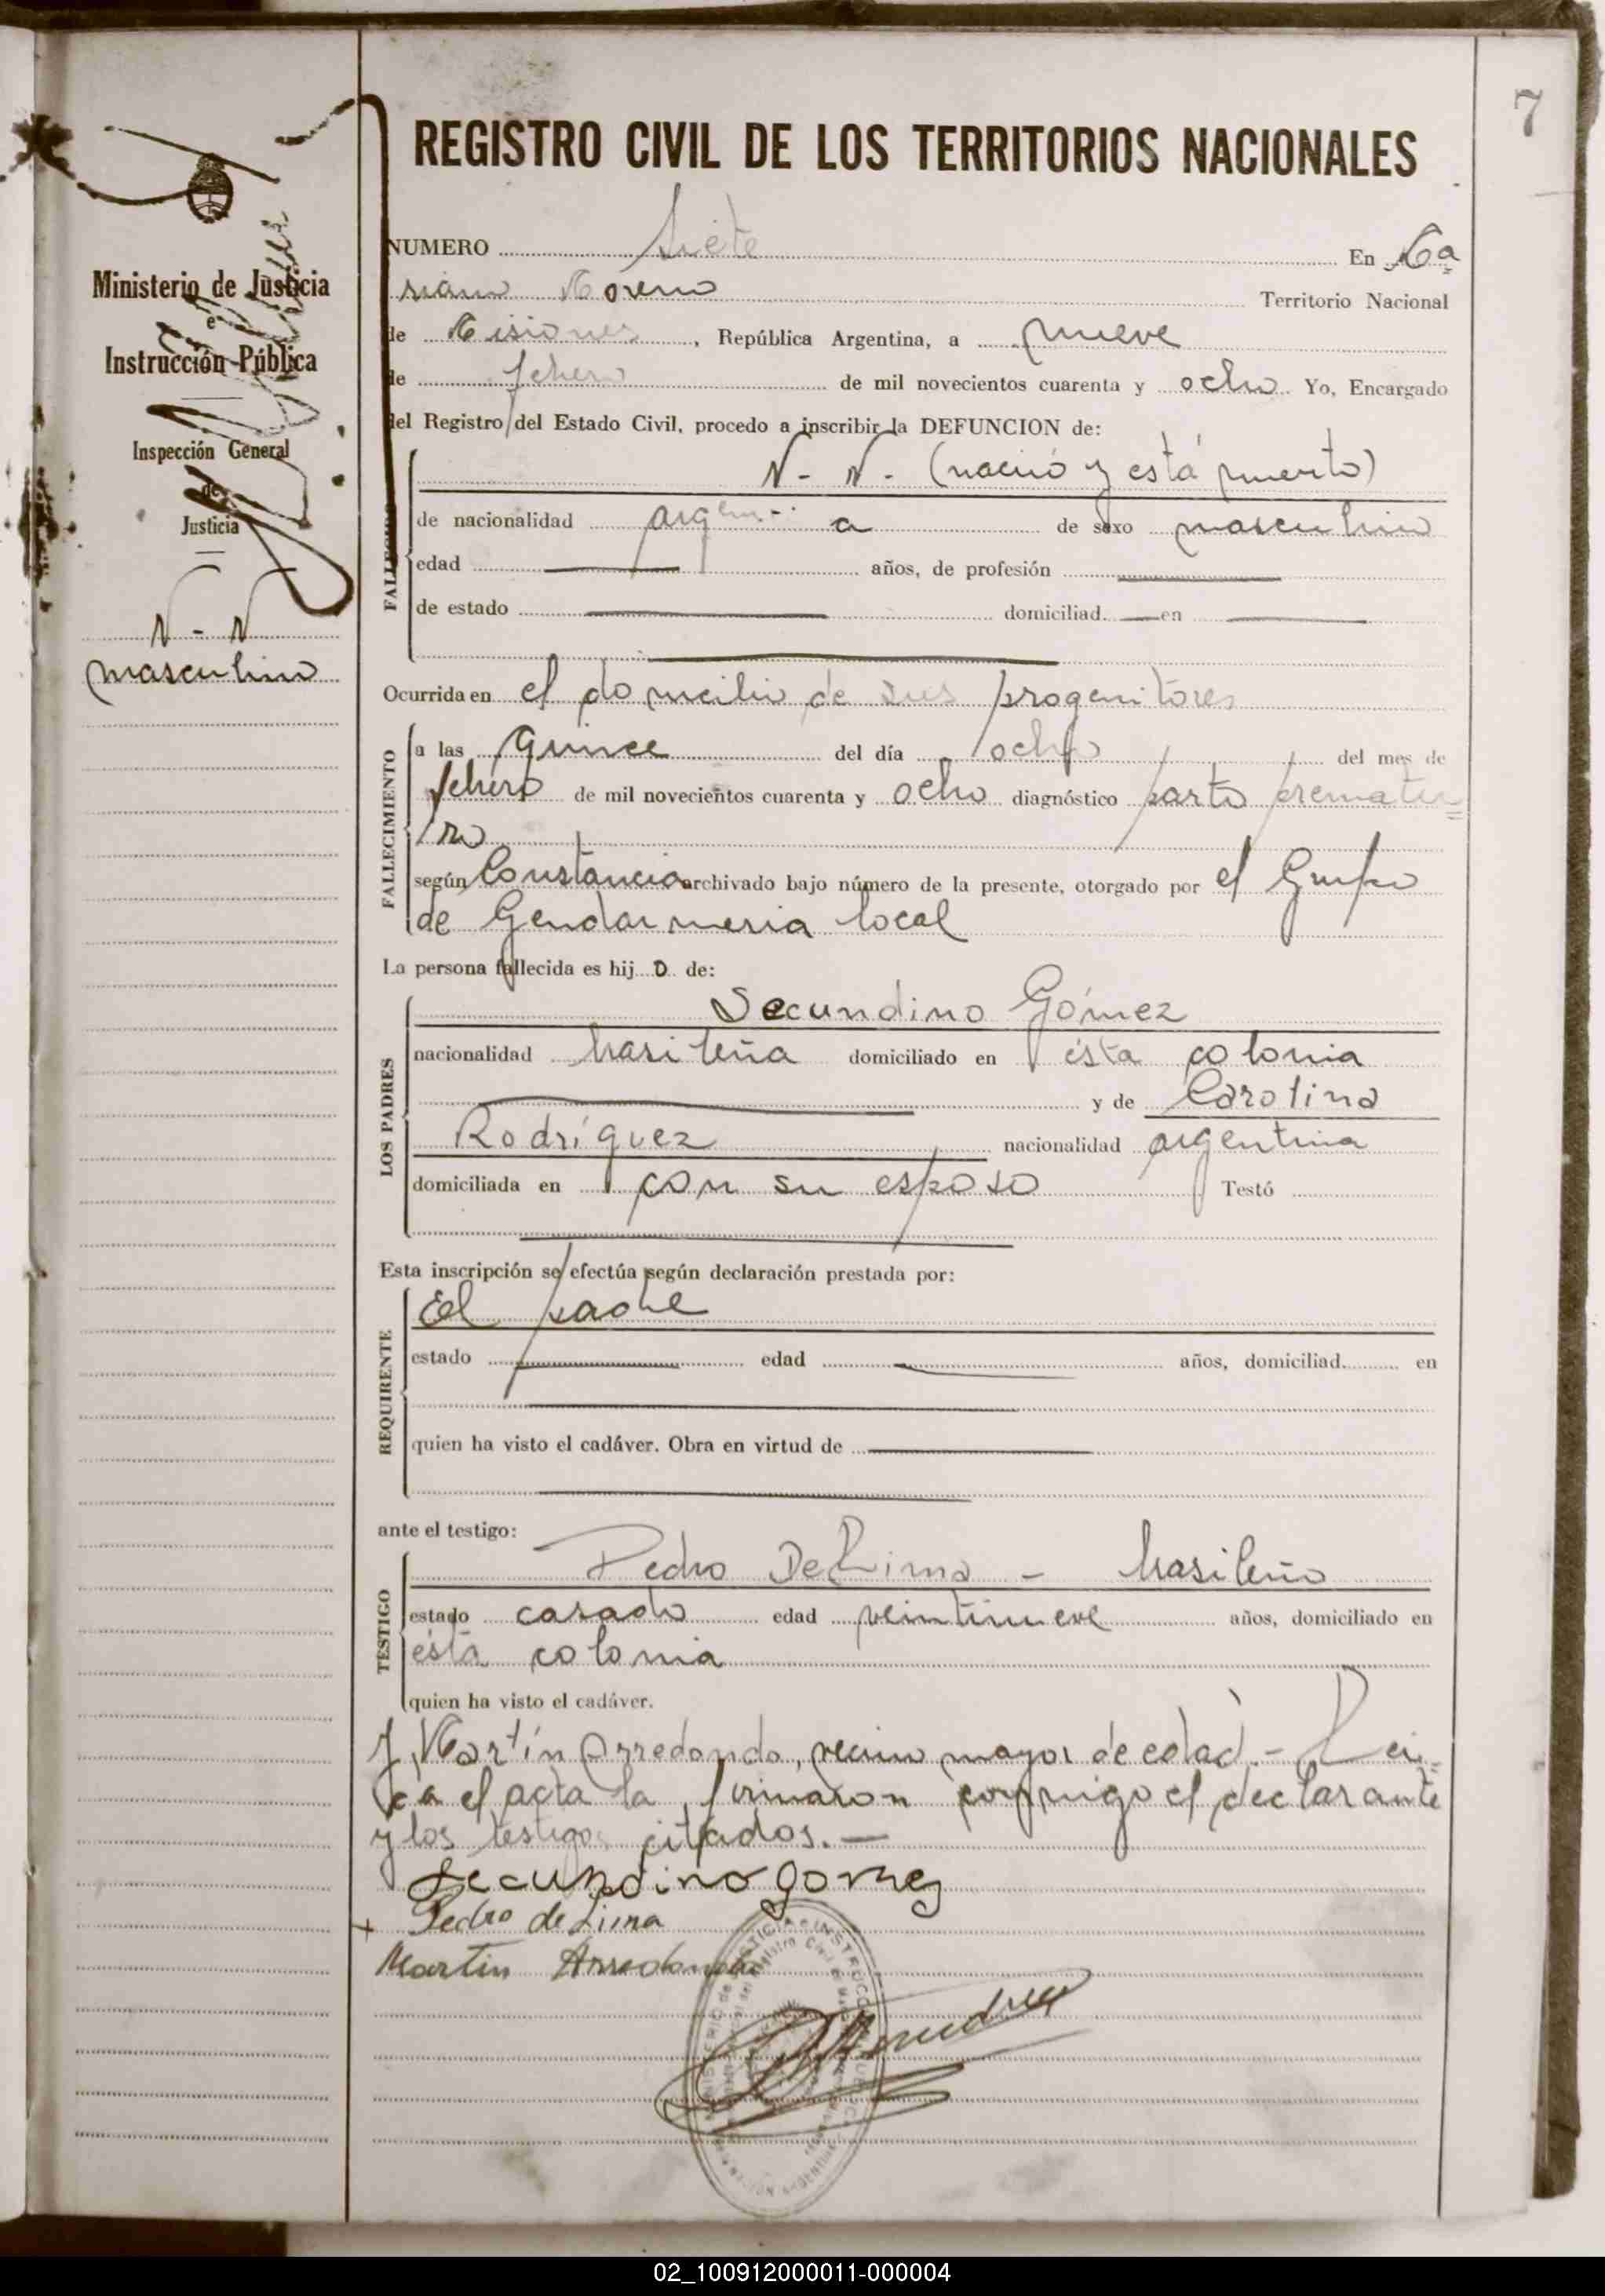 7
REGISTRO CIVIL DE LOS TERRITORIOS NACIONALES
Ministerio de Justicia
e
Instrucción Pública
Inspección General
de
Justicia
N - N
masculino
NUMERO Siete En Ma
riano Moreno Territorio Nacional
de Misiones, República Argentina, a nueve
de febrero de mil novecientos cuarenta y ocho Yo, Encargado
del Registro del Estado Civil, procedo a inscribir la DEFUNCION de:
N - N - (nació y está muerto)
de nacionalidad argentina de sexo masculino
edad años, de profesión
de estado domiciliad en
Ocurrida en el domicilio de sus progenitores
FALLECIMIENTO
a las quince del día ocho del mes de
febrero de mil novecientos cuarenta y ocho diagnóstico parto prematu=
ro
según Constancia archivado bajo número de la presente, otorgado por el Grupo
de Gendarmeria local
La persona fallecida es hij o de:
LOS PADRES
Secundino Gómez
nacionalidad brasileña domiciliado en ésta colonia
y de Carolina
Rodríguez nacionalidad argentina
domiciliada en con su esposo Testó
Esta inscripción se efectúa según declaración prestada por:
REQUIRENTE
El padre
estado edad años, domiciliad en
quien ha visto el cadáver. Obra en virtud de
ante el testigo:
TESTIGO
Pedro De Lima - brasileño
estado casado edad veintinueve años, domiciliado en
ésta colonia
quien ha visto el cadáver.
y Martín Arredondo, vecino mayor de edad.- Lei=
da el acta la firmaron conmigo el declarante
y los testigos citados.—
Secundino gomez
+ Pedro de Lima
Martin Arredondo
02_100912000011-000004